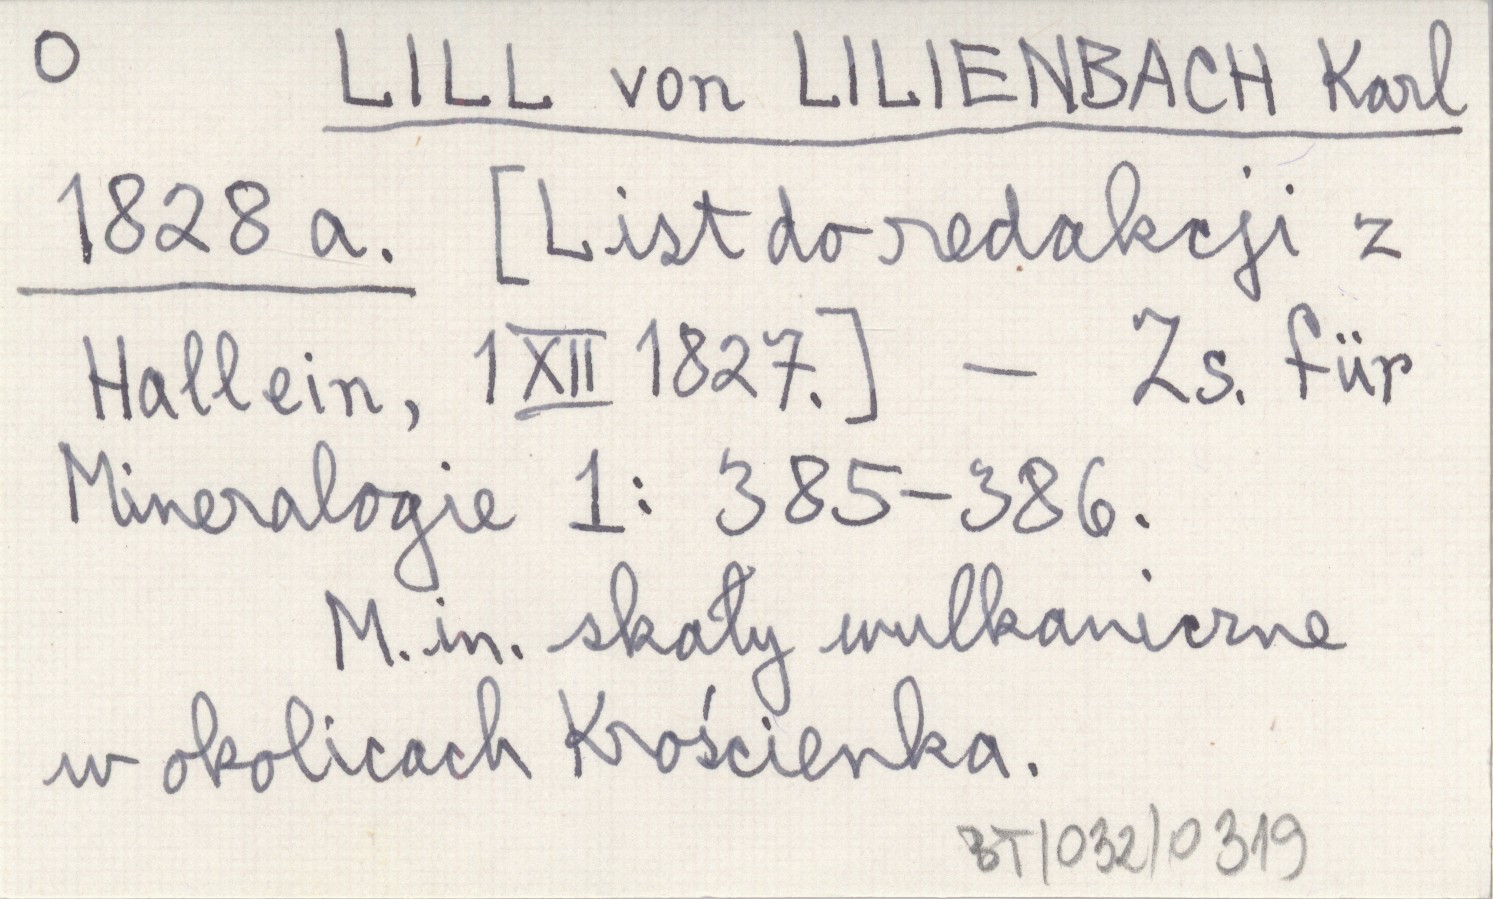 O LILL von LILIENBACH Karl
1828 a. [List do redakcji z
Hallein, 1 XII 1827.] – Zs. für
Mineralogie 1: 385–386.
M. in. skały wulkaniczne
w okolicach Krościenka.
BT/032/0319